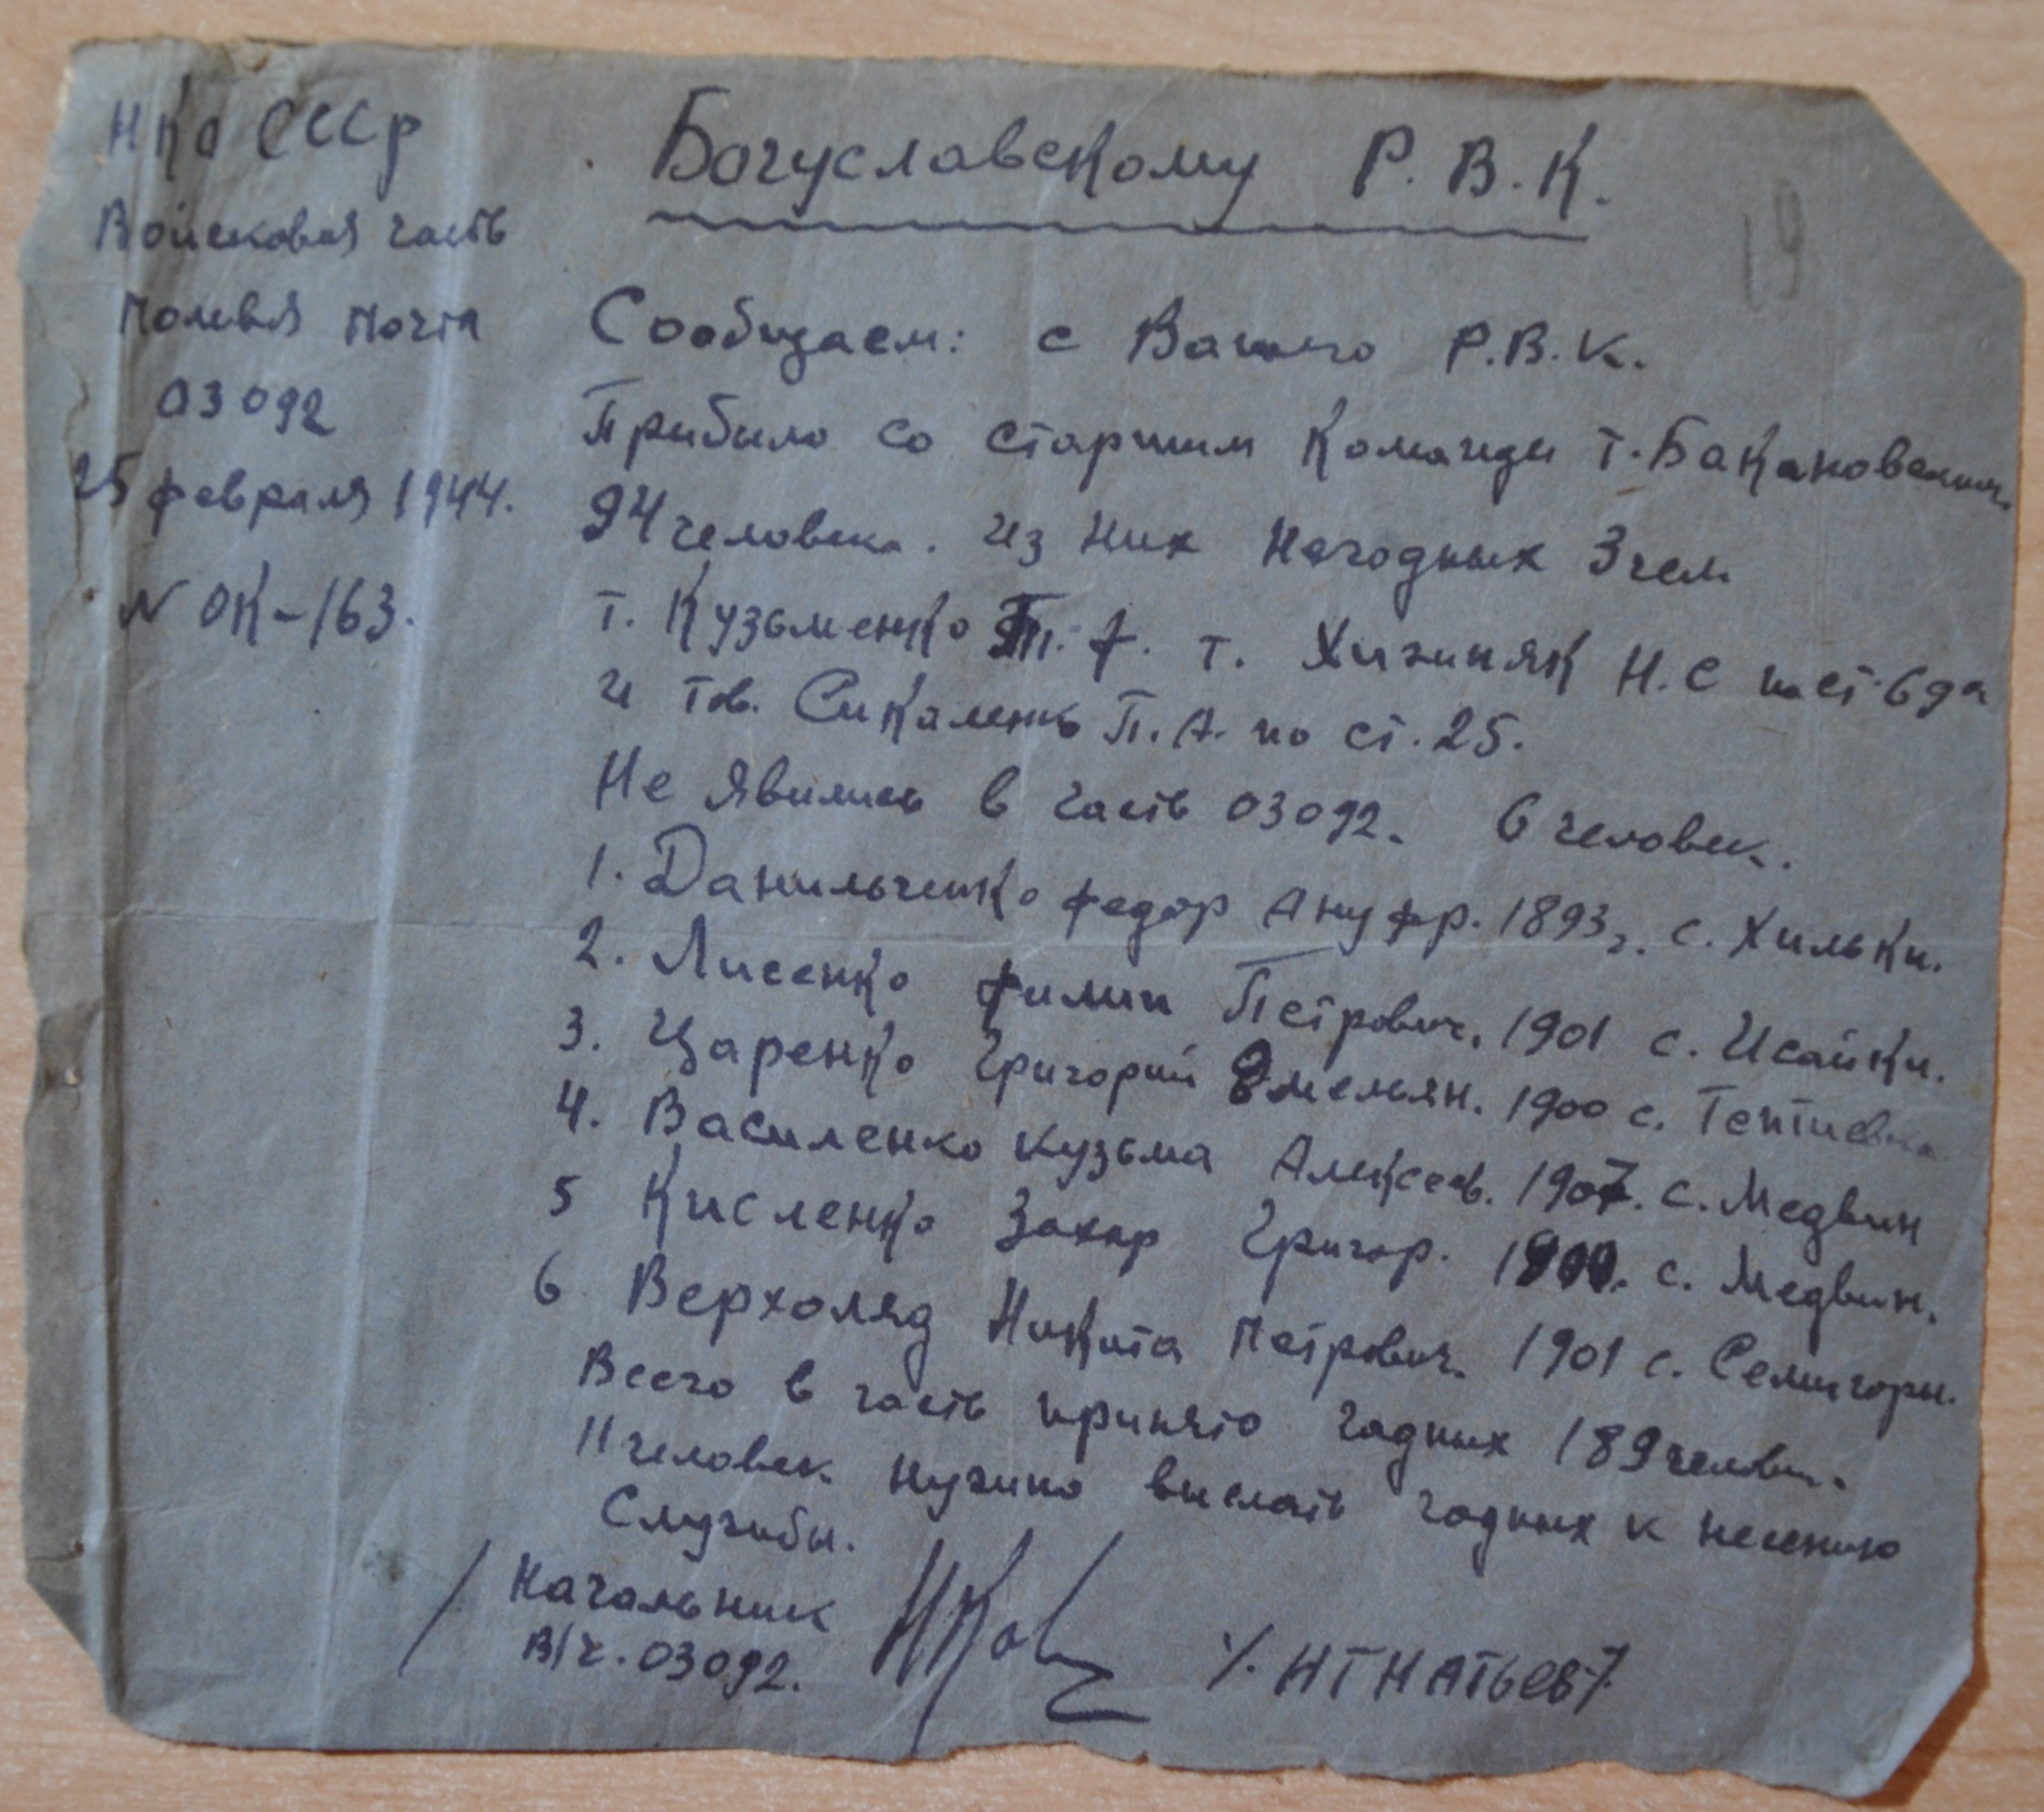 НКО СССР
Войсковая часть
Полевая почта
03092
25 февраля 1944.
N ОК-163.
Богуславскому Р.В.К.
19
Сообщаем: с Вашего Р.В.К.
Прибыло со старшим команды т. Бакановским
94 человека. Из них негодных 3 чел.
т. Кузьменко т. Хижняк Н.С по ст. 69а
и тов. Сикалень П.А. по ст. 25.
Не явились в часть 03092. 6 человек.
1. Данильченко Федор Ануфр. 1893г. с. Хильки.
2. Лисенко Филип Петрович. 1901 с. Исайки.
3. Царенко Григорий Емельян. 1900 с. Тептиевка
4. Василенко Кузьма Алексеев. 1907. с. Медвин
5 Кисленко Захар Григор. 1900. с. Медвин.
6 Верхоляд Никита Петрович. 1901 с. Семигоры.
Всего в часть принято годных 189 человек.
11 человек нужно выслать годных к несению
Службы.
Начальник
В/ч. 03092. /. ИГНАТЬЕВ /.